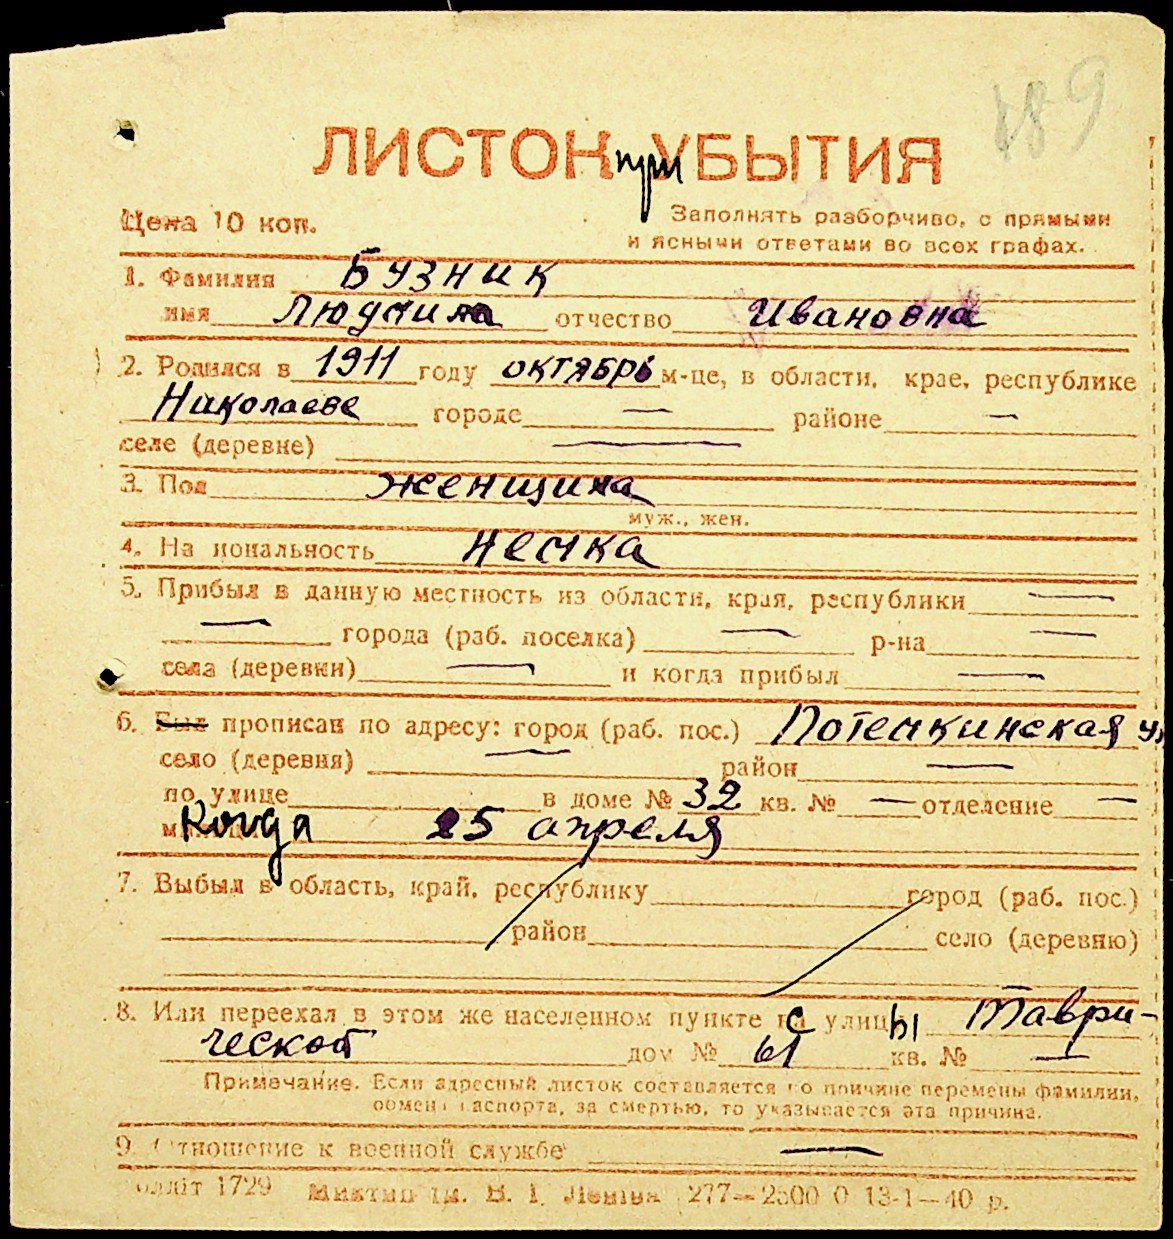 189
ЛИСТОК при УБЫТИЯ
Цена 10 коп.
Заполнять разборчиво, с прямыми
и ясными ответами во всех графах.
1. Фамилия Бузник
имя Людмила отчество Ивановна
2. Родился в 1911 году октябрь м-це, в области, крае, республике
Николаеве городе — районе —
селе (деревне) —
3. Пол женщина
муж., жен.
4. Национальность немка
5. Прибыл в данную местность из области, края, республики —
— города (раб. поселка) — р-на —
села (деревни) — и когда прибыл —
6. Был прописан по адресу: город (раб. пос.) Потемкинская ул
село (деревня) — район —
по улице в доме № 32 кв. № — отделение —
Когда 25 апреля
7. Выбыл в область, край, республику город (раб. пос.)
район село (деревню)
8. Или переехал в этом же населенном пункте с улицы Таври-
ческой дом № 61 кв. № —
Примечание. Если адресный листок составляется по причине перемены фамилии,
обмена паспорта, за смертью, то указывается эта причина.
9. Отношение к военной службе —
олліт 1729 Миктип ім. В. І. Леніна 277—2500 0 13-1—40 р.